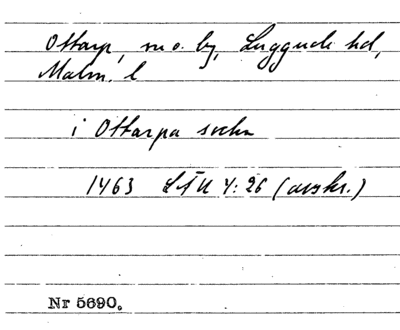 Ottarp, sn o. by, Luggude hd,
Malm. l
i Ottarpa sokn
1463 LÄU 4:26 (avskr.)
Nr 5690.